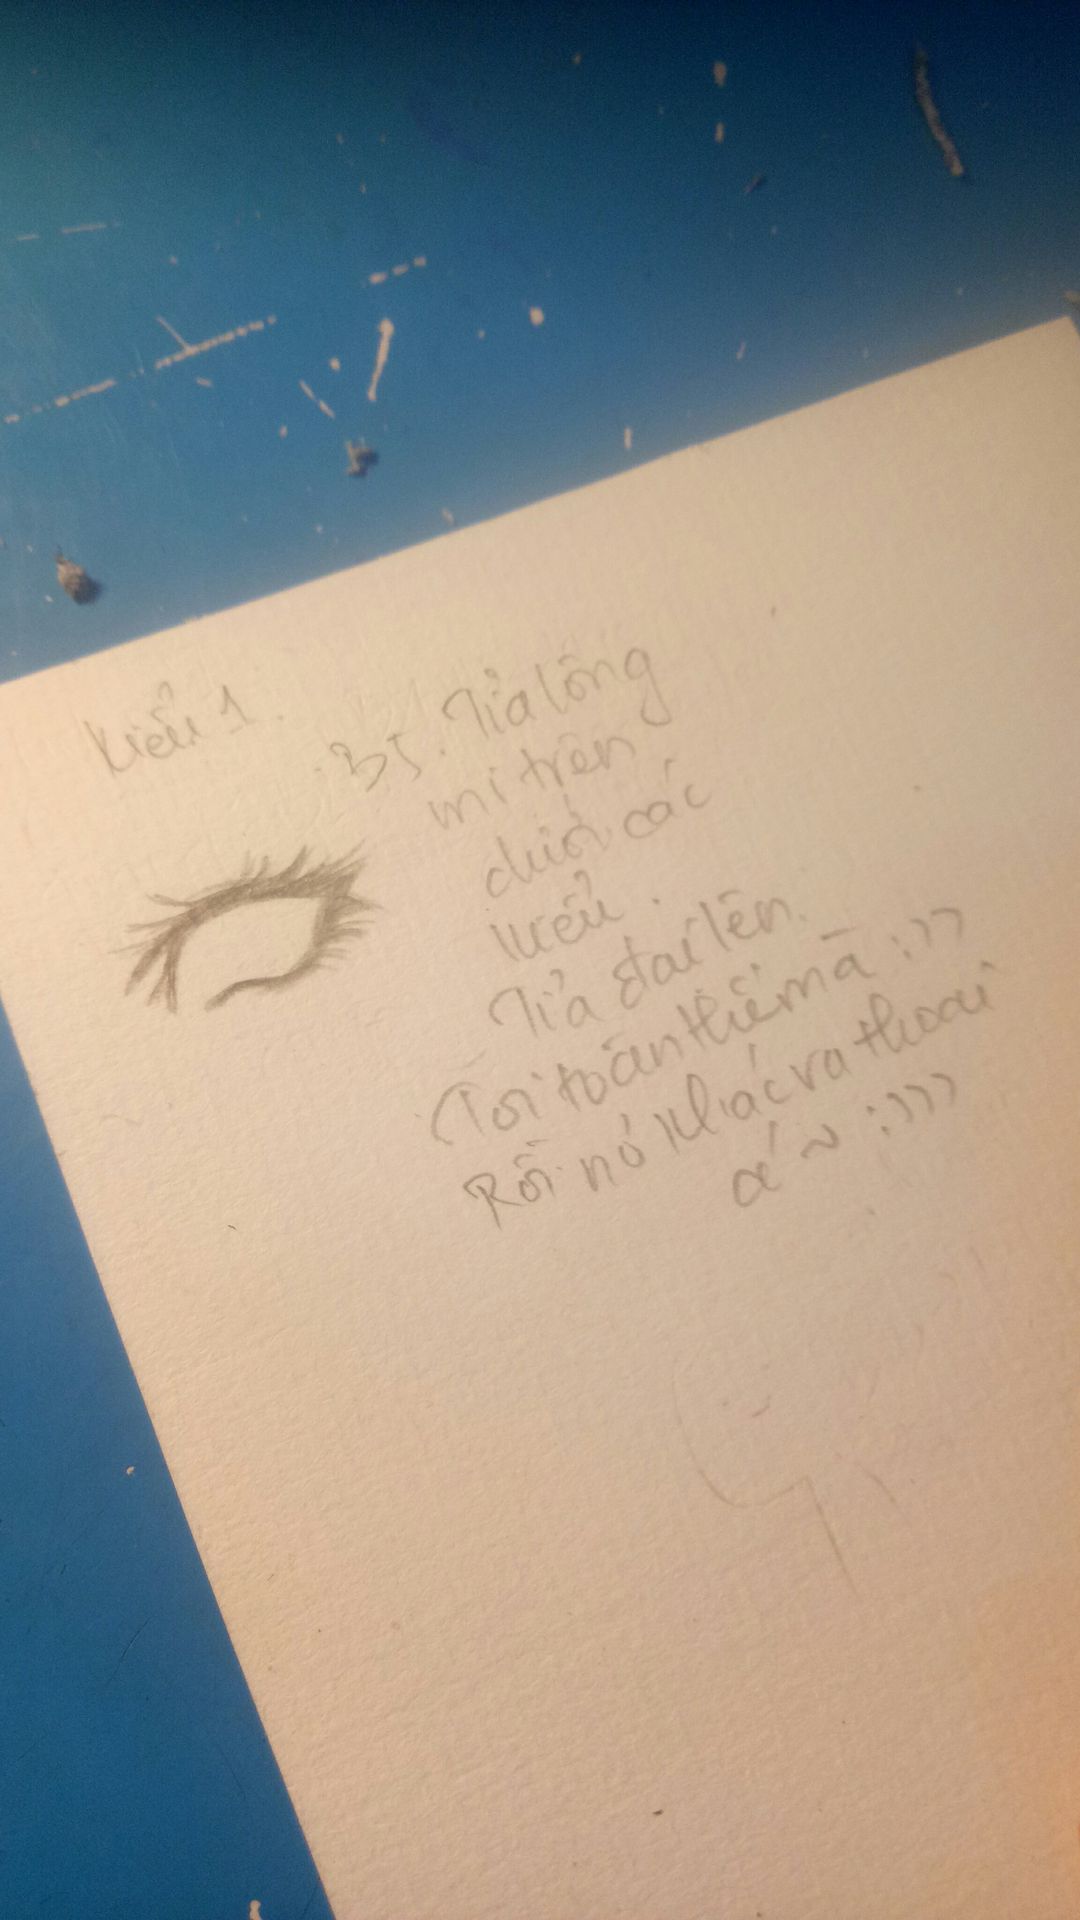 Kiểu 1.
B5. Tỉa lông
mi trên
dưới các
kiểu.
Tỉa đai lên.
Tôi toàn thế mà :))
Rồi nó khác ra thoai
á ~ :)))